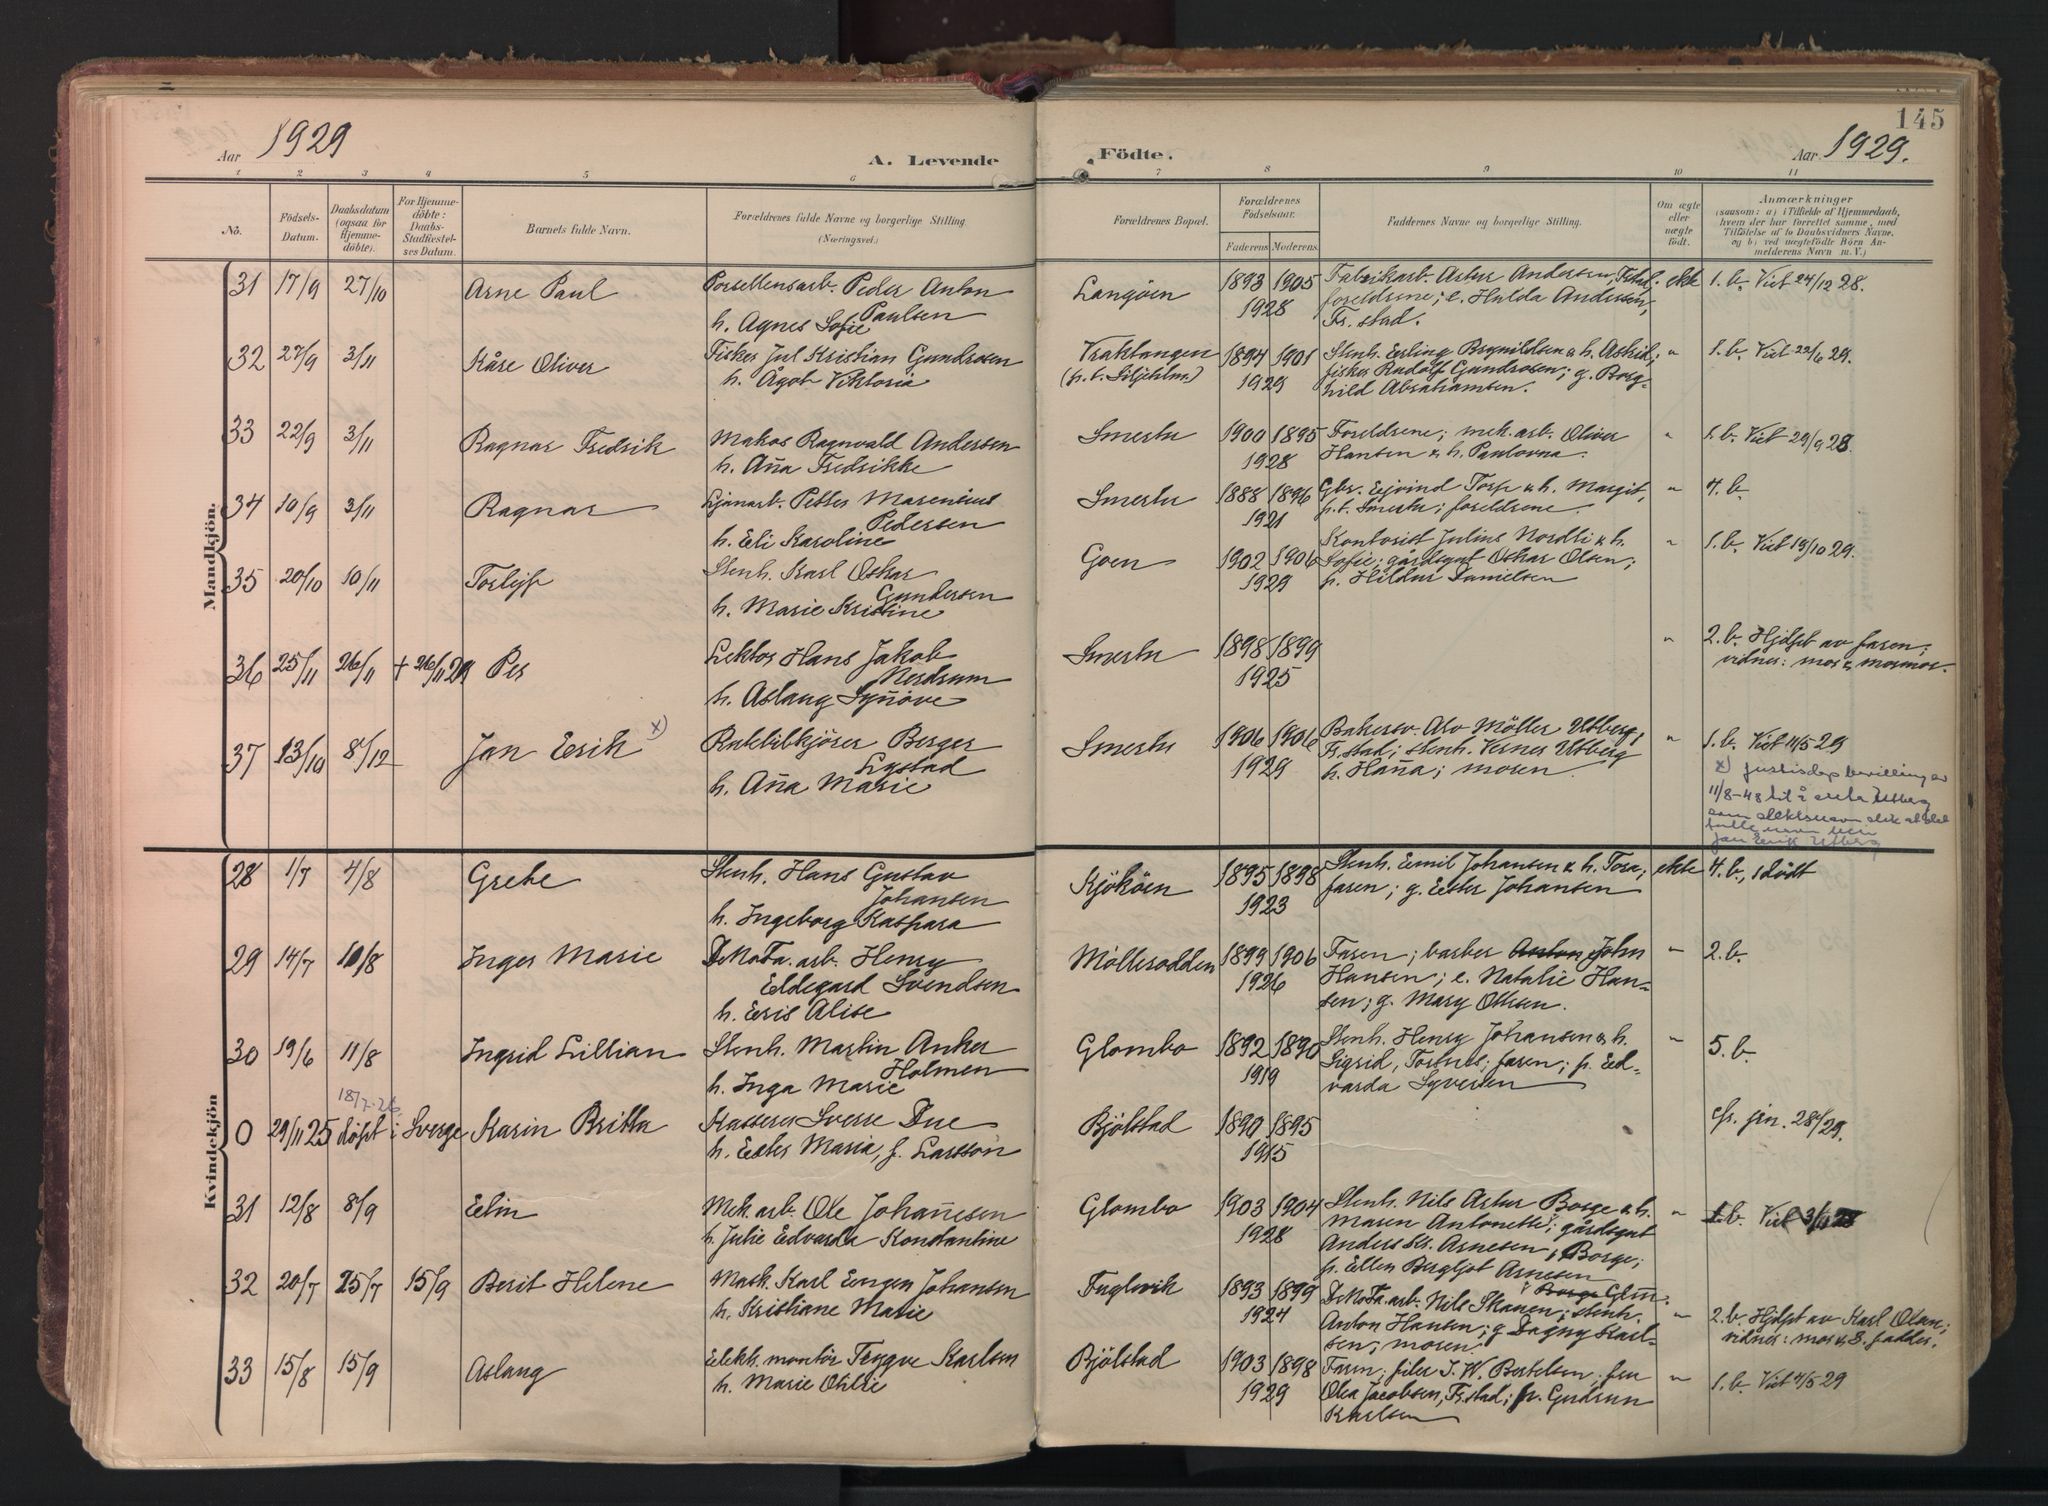 145
Aar 1929
A. Levende
Födte.
Aar 1929.
1 2 3 4 5 6 7 8 9 10 11
No.
Födsels-
Datum.
Daabsdatum
(ogsaa for
Hjemme-
döbte).
For Hjemme-
döbte:
Daabs-
Stadfæstel-
ses Datum.
Barnets fulde Navn.
Forældrenes fulde Navne og borgerlige Stilling.
(Næringsvei.)
Forældrenes Bopæl.
Forældrenes
Födselsaar.
Faderens Moderens.
Faddernes Navne og borgerlige Stilling.
Om ægte
eller
uægte
födt.
Anmærkninger
(saasom: a) i Tilfælde af Hjemmedaab,
hvem der har forrettet samme, med
Tilföielse af to Daabsvidners Navne,
og b) ved uægtefödte Börn An-
melderens Navn m. V.)
Mandkjön.
31 17/9 27/10 Arne Paul
Porsellensarb. Peder Anton
Paulsen
h. Agnes Sofie
Langöen 1893 1905
1928
Fabrikarb. Artur Andersen, Frstad;
foreldrene; e. Hulda Andersen,
Fr.stad.
ekte
1. b. Viet 24/12 28.
32 27/9 3/11 Kåre Oliver
Fisker Jul Kristian Gundrosen
h. Ågot Viktoria
Vraktangen
(p.t. Siljeholm.)
1894 1901
1929
Stenh. Erling Brynildsen & h. Astrid;
fisker Rudolf Gundrosen; g. Borg-
hild Abrahamsen.
"
1. b. Viet 22/6 29.
33 22/9 3/11 Ragnar Fredrik
Maker Ragnvald Andersen
h. Aña Fredrikke
Smertu 1900 1895
1928
Foreldrene; mek. arb. Oliver
Hansen & h. Paulovna.
"
1. b. Viet 29/9 28.
34 10/9 3/11 Ragnar
Petter Marenius
Pedersen
h. Eli Karoline
Smertu 1888 1896
1921
Gbr. Eivind Torp & h. Margit,
p.t. Smertu; foreldrene.
"
4. b.
35 20/10 10/11 Torleif
Stenh. Karl Oskar
Gundersen
h. Marie Kristine
Goen 1902 1906
1929
Kontorist Julius Nordli & h.
Sofie; gårdsgut Oskar Olsen;
p. Hildur Danielsen
"
1. b. Viet 19/10 29.
36 25/11 26/11 + 26/11 29 Per
Lektor Hans Jakob
Nerdrum
h. Aslaug Syñöve
Smertu 1898 1899
1925
"
2. b. Hjdöpt av faren;
vidner: mor & mormor.
37 13/10 8/12 Jan Erik x)
Berger
Lystad
h. Aña Marie
Smertu 1906 1906
1929
Bakersv. Alv Möller Utberg,
Fr.stad; stenh. Verner Utberg
h. Haña; moren.
"
1. b. Viet 11/5 29
x) Justisdep bevilling av
11/8-48 til å anta Utberg
som slektsnavn slik at det
fulle navn blir
Jan Erik Utberg
Kvindekjön
28 1/7 4/8 Grete
Stenh. Hans Gustav
Johansen
h. Ingeborg Kaspara
Kjököen 1895 1898
1923
Stenh. Emil Johansen & h. Tora;
faren; g. Ester Johansen
ekte
4. b., 1 dödt
29 14/7 10/8 Inger Marie
DeNoFa. arb. Henry
Eldegard Svendsen
h. Eris Alise
Mölleroddens 1899 1906
1926
Faren; barber Anton John
Hansen; e. Natalie Han-
sen; g. Mary Ottesen.
"
2. b.
30 19/6 11/8 Ingrid Lillian
Stenh. Martin Anker
Holmen
h. Inga Marie
Glombo 1892 1890
1919
Stenh. Henry Johansen & h.
Sigrid, Torsnes; faren; p. Ed-
varda Syversen
"
5. b.
18/7-26
0 29/11 25 döpt i Sverge Karin Britta
Kasserer Sverre Due
h. Ester Maria, f. Larsson
Bjölstad 1890 1895
1915
cfr. jrn. 28/29.
31 12/8 8/9 Elin
Mek. arb. Ole Johañesen
h. Julie Edvarda Konstantine
Glombo 1903 1904
1928
Stenh. Nils Artur Borge & h.
Maren Antonette; gårdsgut
Anders Kr. Arnesen, Borge;
p. Ellen Bergljot Arnesen
i Borge
"
1. b. Viet
32 20/7 25/7 15/9 Berit Helene
Mask. Karl Eugen Johansen
h. Kristiane Marie
Fuglevik 1893 1899
1924
DeNoFa. arb. Nils Skanen; stenh.
Anton Hansen; g. Dagny Karl-
sen; moren.
"
2. b. Hjdöpt av Karl Olsen;
vidner: mor & 3. fadder.
33 15/8 15/9 Aslaug
Elekk. montör Trygve Karlsen
h. Marie Otilie
Bjölstad 1903 1898
1929
Faren; filer I. W. Bertelsen; fru
Olea Jacobsen, Fr.stad; p. Gudrun
Karlsen
"
1. b. Viet 4/5 29